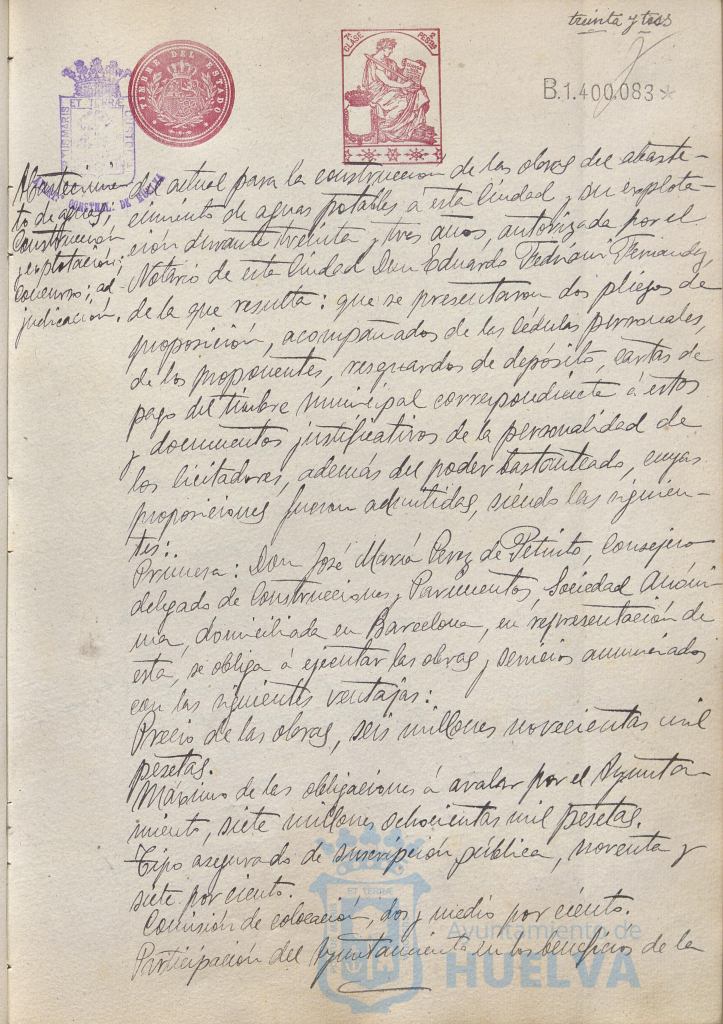 treinta y tres
TIMBRE DEL ESTADO
7ª CLASE
PESTAS
B.1.400.083*
ET TERRÆ
Abastecimien-
to de aguas,
Construcción
y explotación:
Concurso; ad-
judicación.
del actual para la construccion de las obras del abaste-
cimiento de aguas potables á esta Ciudad y su explota-
cion durante treinta y tres años, autorizada por el
Notario de esta Ciudad Don Eduardo Fedriani Fernandez,
de la que resulta: que se presentaron dos pliegos de
proposición, acompañados de las cédulas personales,
de los proponentes, resguardos de depósito, cartas de
pago del timbre municipal correspondiente á éstos
y documentos justificativos de la personalidad de
los licitadores, además del poder bastanteado, cuyas
proposiciones fueron admitidas, siendo las siguien-
tes:
Primera: Don José María Perez de Petinto, Consejero
delegado de Construcciones y Pavimentos, Sociedad Anóni-
ma, domiciliada en Barcelona, en representación de
esta, se obliga á ejecutar las obras y servicios anunciados
con las siguientes ventajas:
Precio de las obras, seis millones novecientas mil
pesetas.
Máximo de las obligaciones á avalar por el Ayunta-
miento, siete millones ochocientas mil pesetas.
Tipo asegurado de suscripción pública, noventa y
siete por ciento.
Comisión de colocación, dos y medio por ciento.
Participación del Ayuntamiento en los beneficios de la
ET TERRÆ
Ayuntamiento de
HUELVA